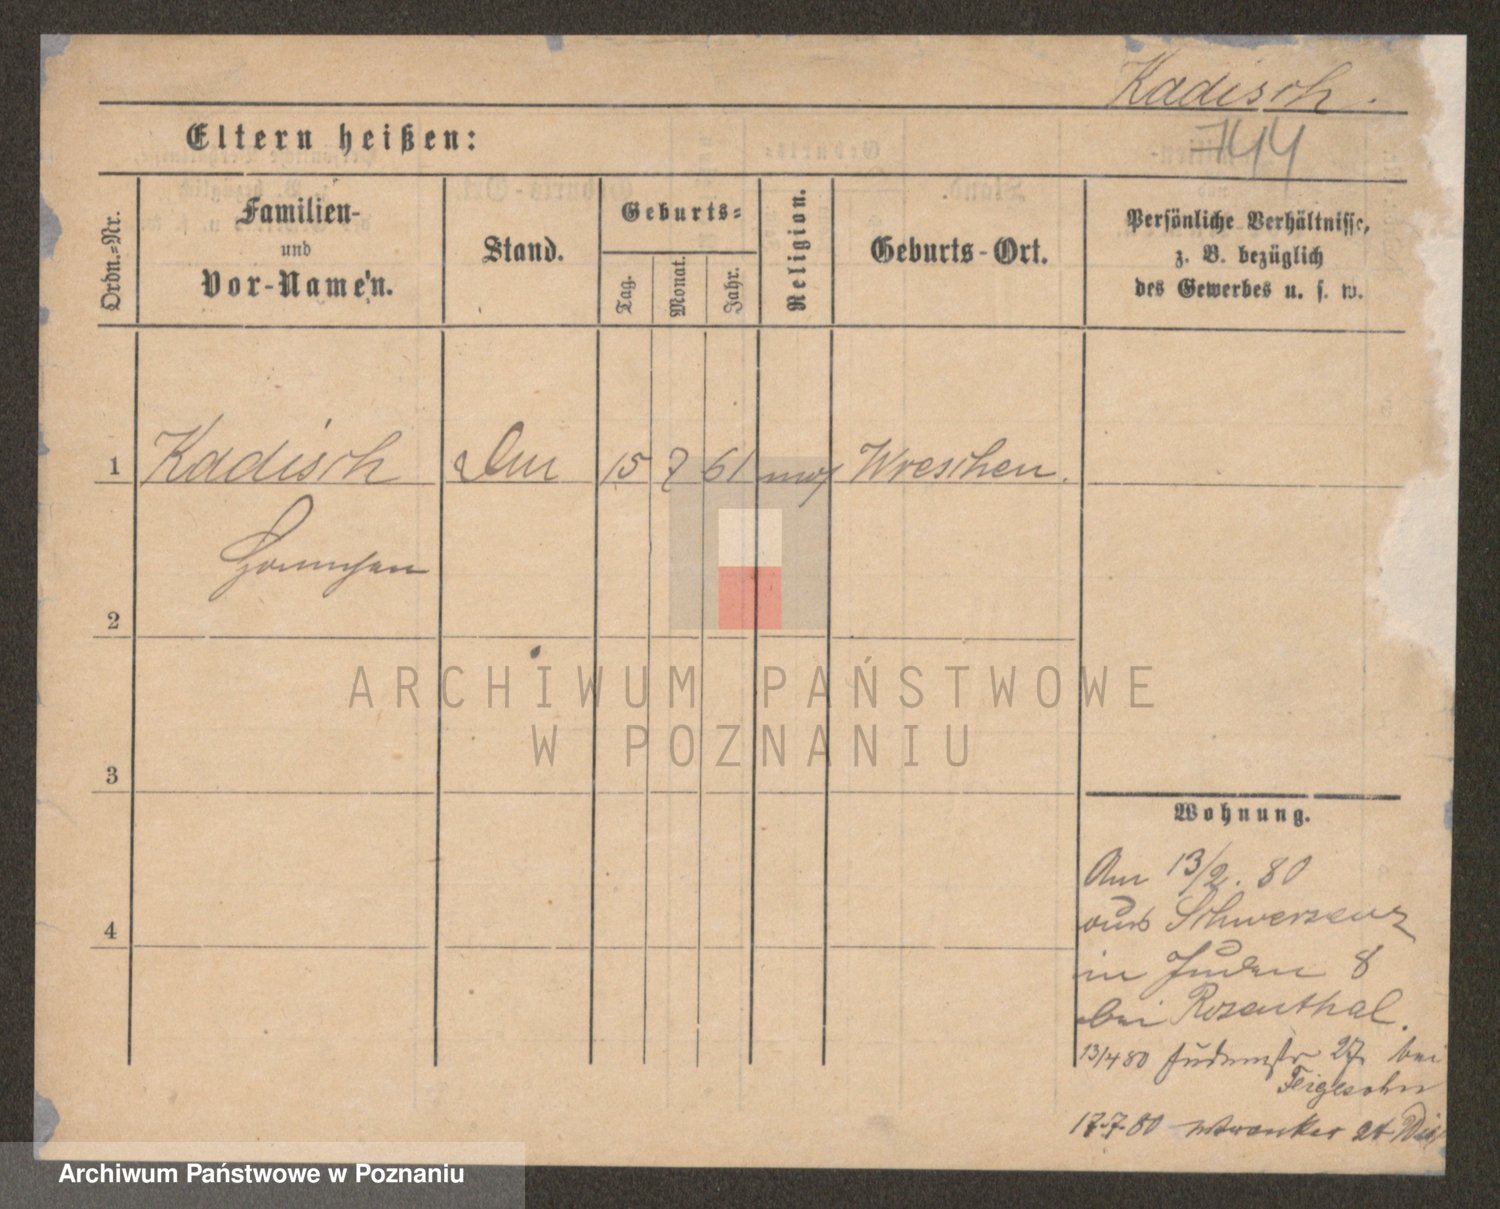 Kadisch.
744
Eltern heißen:
Ordn.=Nr.
Familien-
und
Vor-Namen.
Stand.
Geburts=
Tag.
Monat.
Jahr.
Religion.
Geburts-Ort.
Persönliche Verhältnisse,
z. B. bezüglich
des Gewerbes u. s. w.
1 Kadisch 15 7 61 mos Wreschen.
2
3
4
ARCHIWUM PAŃSTWOWE
W POZNANIU
Wohnung.
Am 13/2. 80
aus Schwersenz
in Juden 8
bei Rosenthal.
13/4 80 Judenstr 27 bei
Feigesohn
17.7.80
Archiwum Państwowe w Poznaniu